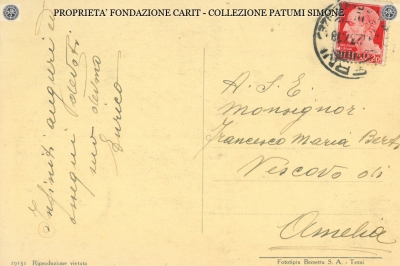 PROPRIETA' FONDAZIONE CARIT - COLLEZIONE PATUMI SIMONE
Infiniti auguri ed
ossequi devoti
suo dev.mo
Enrico
A. S. E.
Monsignor
Francesco Maria Berti
Vescovo di
Amelia
TERNI
Riproduzione vietata
Fototipia Benetta S. A. - Terni